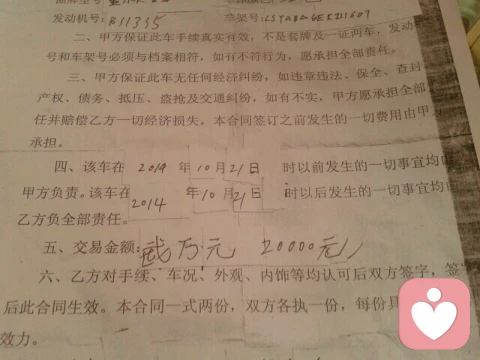 发动机号:B11335 车架号:LSTABGE
二、甲方保证此车手续真实有效,不是套牌及一证两车,发动
号和车架号必须与档案相符,如有不符行为,愿承担全部责任。
三、甲方保证此车无任何经济纠纷,如违章违法、保全、查封
产权、债务、抵压、盗抢及交通纠纷,如有不实,甲方愿承担全部
任并赔偿乙方一切经济损失,本合同签订之前发生的一切费用由甲
承担。
四、该车在 2014 年 10 月 21 日 时以前发生的一切事宜均
甲方负责。该车在 2014 年 10 月 21 日 时以后发生的一切事宜均
乙方负全部责任。
五、交易金额:贰万元 20000元
六、乙方对手续、车况、外观、内饰等均认可后双方签字,签
后此合同生效。本合同一式两份,双方各执一份,每份具
效力。